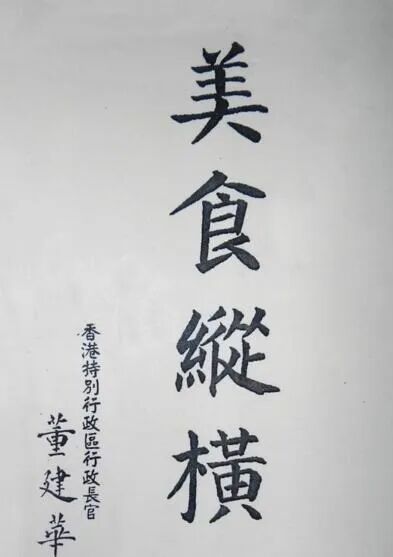 美食縱橫
香港特別行政區行政長官
董建華